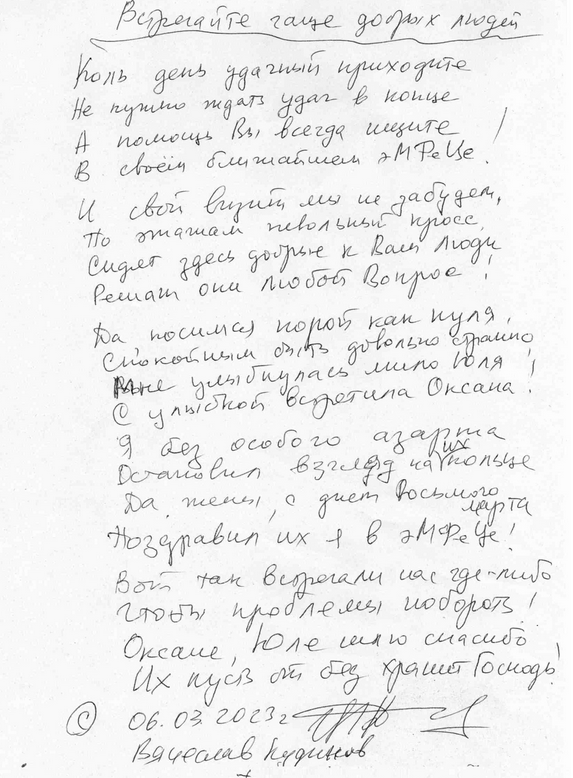 Встречайте чаще добрых людей
Коль день удачный приходите
Не нужно ждать удач в конце
А помощь Вы всегда ищите
В своём ближайшем эМФеЦе!
И свой визит мы не забудем,
По этажам невольный кросс,
Сидят здесь добрые к Вам Люди
Решат они Любой Вопрос!
Да, носимся порой как пуля,
Спокойным быть довольно странно
Мне улыбнулась мило Юля!
С улыбкой встретила Оксана!
Я без особого азарта
Остановил взгляд на их кольце
Да, жены, с днем Восьмого марта
Поздравил их я в эМФеЦе!
Вот так встречали нас где-либо
Чтобы проблемы побороть!
Оксане, Юле шлю спасибо
Их пусть от бед хранит Господь!
© 06.03.2023г
Вячеслав Кудинов